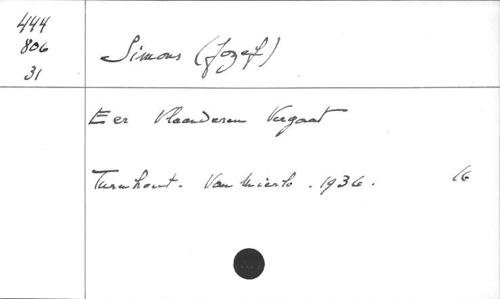 444
806
31
Simons (Jozef)
Eer Vlaanderen Vergaat
Turnhout. Van Mierlo. 1936. 16